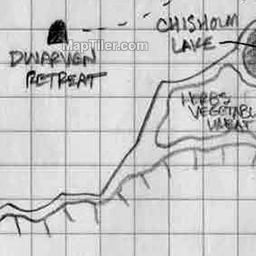 CHISHOLM
LAKE
MapTiler.com
DWARVEN
RETREAT
HERBS
VEGETABL
WHEAT